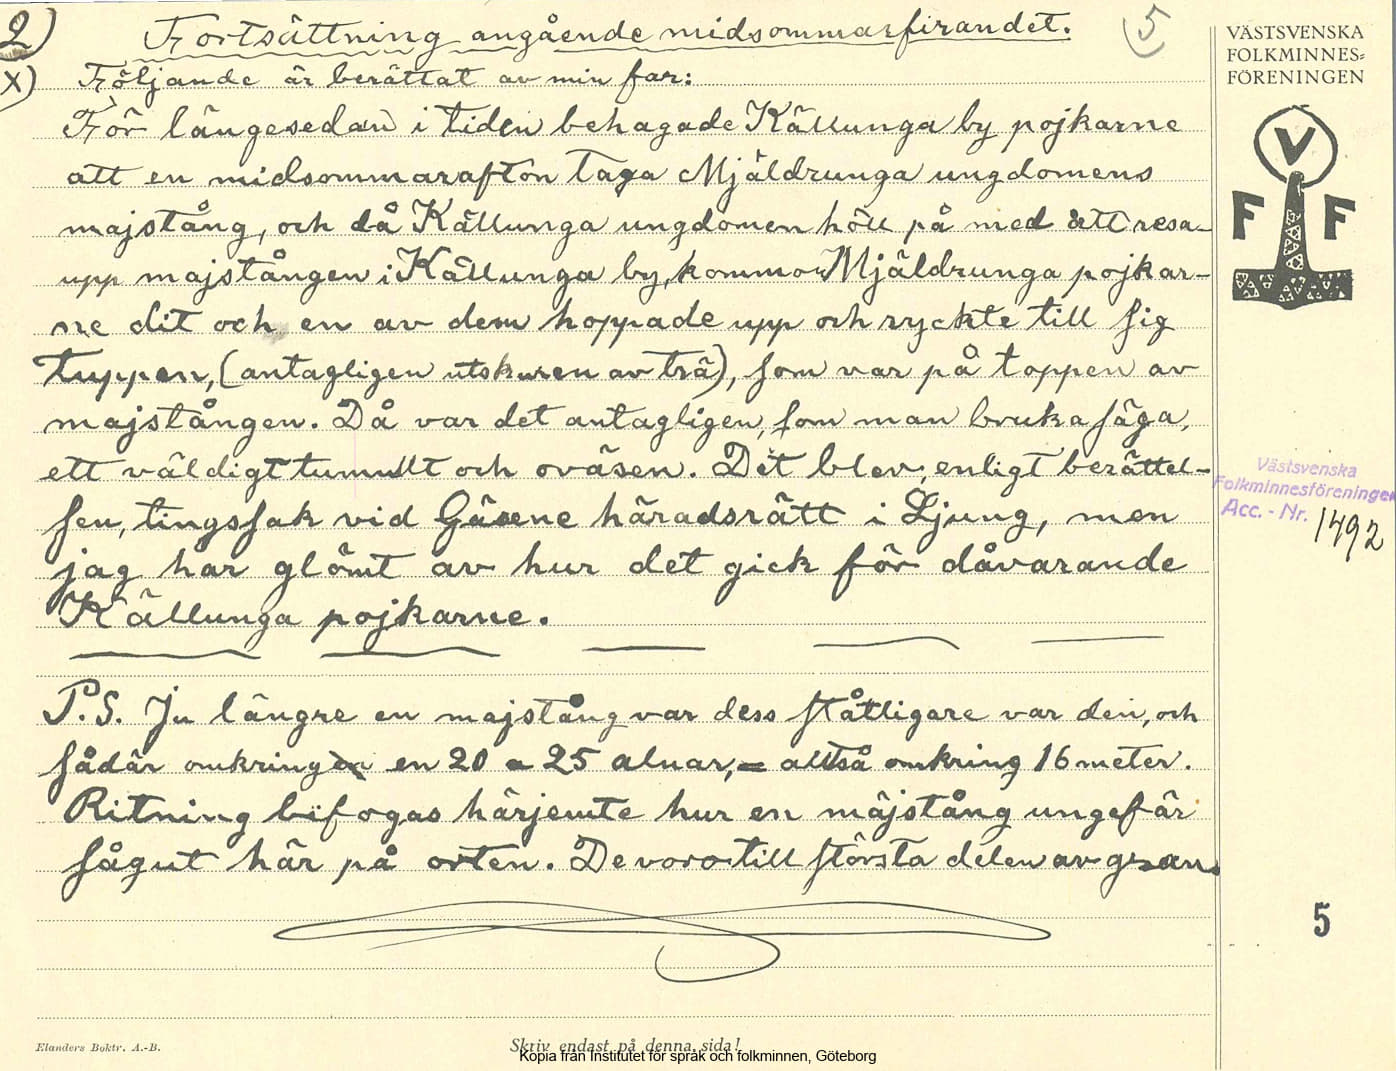 2)
Fortsättning angående midsommarfirandet.
5
x) Följande är berättat av min far:
För längesedan i tiden behagade Källunga by pojkarne
att en midsommarafton taga Mjäldrunga ungdomens
majstång, och då Källunga ungdomen höll på med att resa
upp majstången i Källunga by, kommo Mjäldrunga pojkar-
ne dit och en av dem hoppade upp och ryckte till sig
tuppen, (antagligen utskuren av trä), som var på toppen av
majstången. Då var det antagligen, som man bruka säga,
ett väldigt tumult och oväsen. Det blev, enligt berättel-
sen, tingssak vid Gäsene häradsrätt i Ljung, men
jag har glömt av hur det gick för dåvarande
Källunga pojkarne.
P.S. Ju längre en majstång var dess ståtligare var den, och
sådär omkring en 20 a 25 alnar, = alltså omkring 16 meter.
Ritning bifogas härjemte hur en majstång ungefär
sågut här på orten. De voro till största delen av gran.
VÄSTSVENSKA
FOLKMINNES-
FÖRENINGEN
V
F F
Västsvenska
Folkminnesföreningen
Acc. - Nr. 1492
5
Elanders Boktr. A.-B.
Skriv endast på denna sida!
Kopia från Institutet för språk och folkminnen, Göteborg